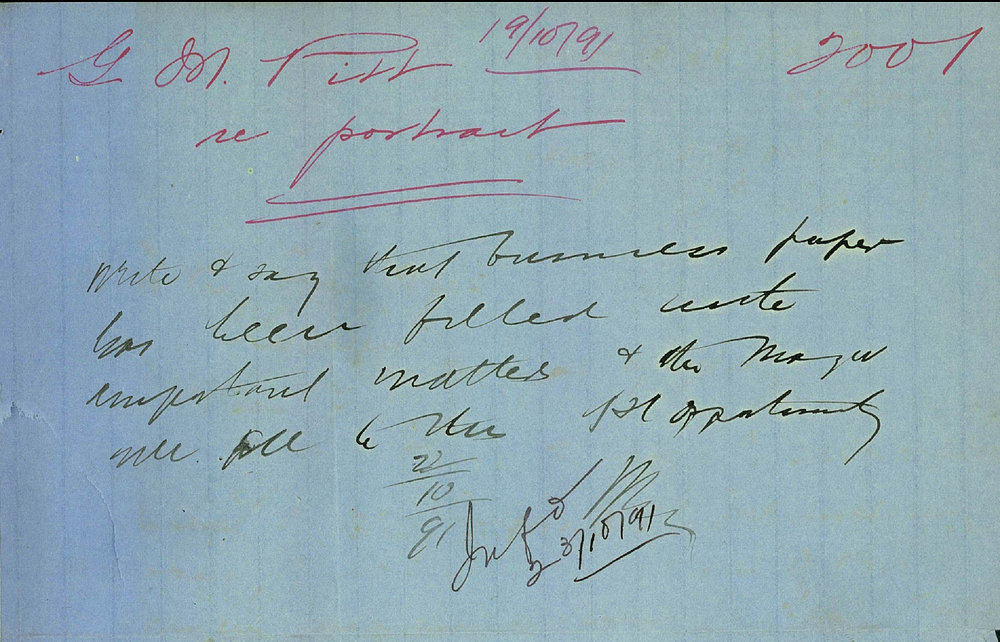 G M. Pitt 19/10/91 2001
re portrait
Write & say that business paper
has been filled with
important matters & the Mayor
will see to this 1st opportunity
22/10/91
Infd
23/10/91